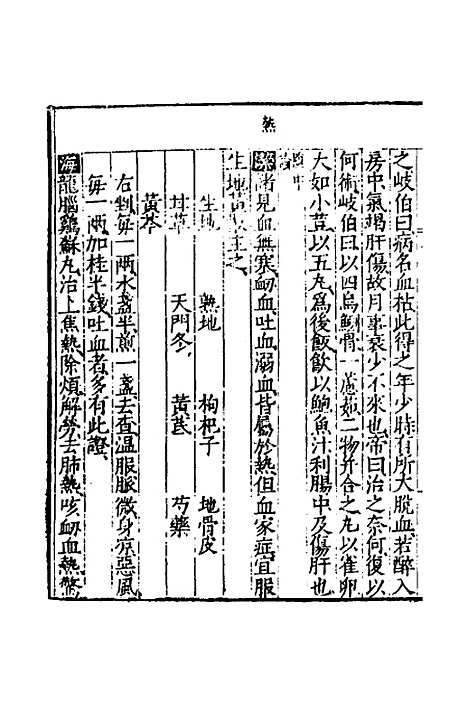 熱
之岐伯曰病名血枯此得之年少時有所大脫血若醉入
房中氣竭肝傷故月事衰少不來也帝曰治之奈何復以
何術岐伯曰以四烏鰂骨一藘茹二物并合之丸以雀卵
大如小荳以五丸爲後飯飮以鮑魚汁利腸中及傷肝也
諸見血無寒衂血吐血溺血皆屬於熱但血家症宜服
生地黃 主之
生地 熟地 枸杞子 地骨皮
甘草 天門冬 黃芪 芍藥
黃芩
右剉每一兩水盞半煎一盞去查溫服脈微身凉惡風
每一兩加桂半錢吐血者多有此證
海龍腦鷄蘇丸治上焦熱除煩解勞去肺熱咳衂血熱驚